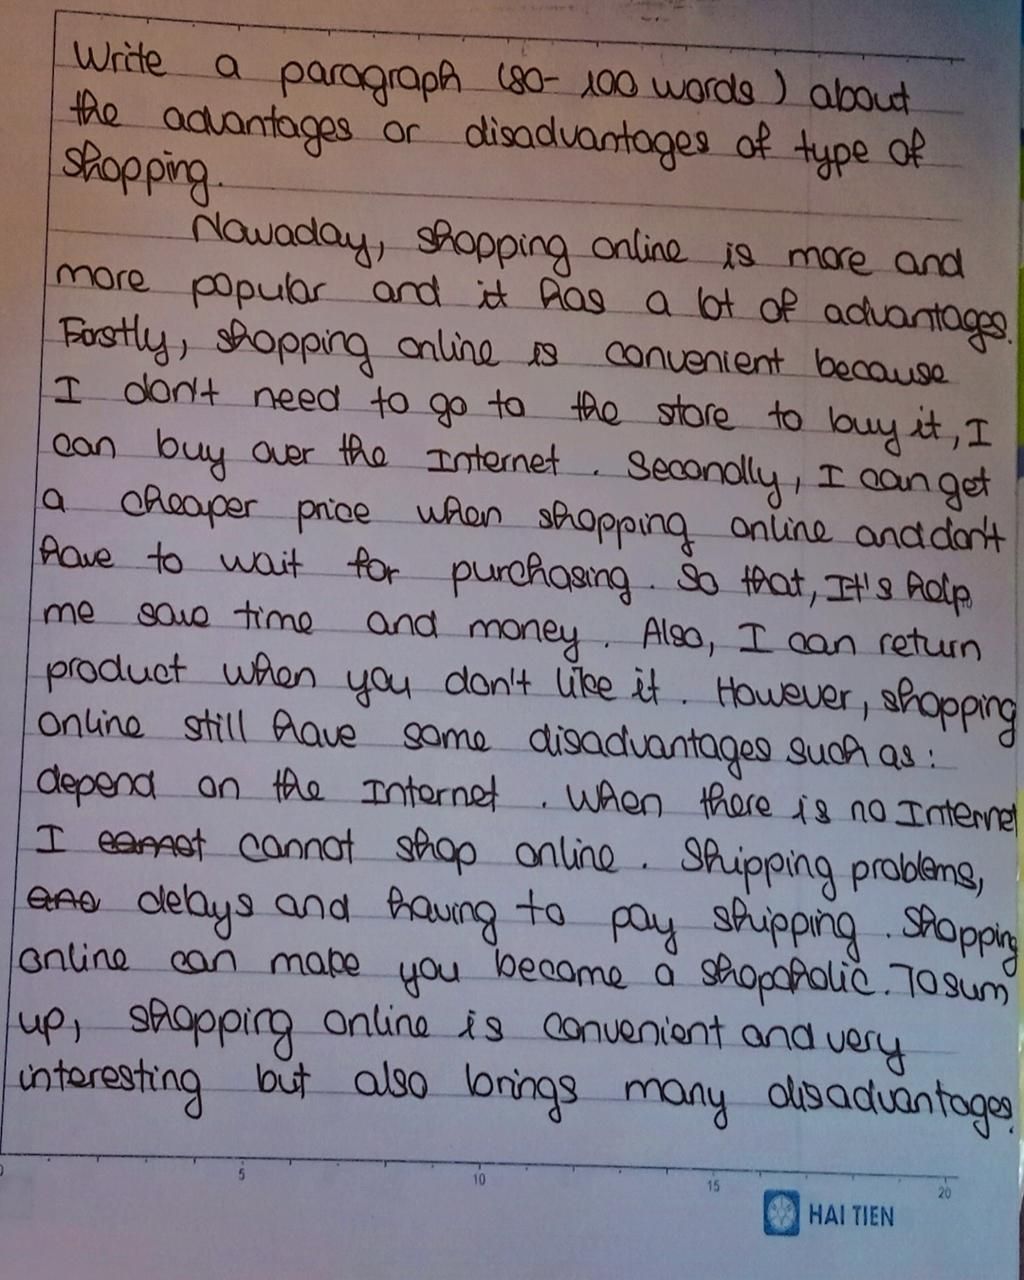 Write a paragraph (80- 100 words) about
the advantages or disadvantages of type of
shopping.
Nowaday, shopping online is more and
more popular and it has a lot of advantages.
Firstly, shopping online is convenient because
I don't need to go to the store to buy it, I
can buy over the Internet. Secondly, I can get
a cheaper price when shopping online and don't
have to wait for purchasing. So that, It's help
me save time and money. Also, I can return
product when you don't like it. However, shopping
online still have some disadvantages such as:
depend on the Internet. When there is no Internet
I cannot shop online. Shipping problems,
delays and having to pay shipping. Shopping
online can make you become a shopaholic. To sum
up, shopping online is convenient and very
interesting but also brings many disadvantages.
5 10 15 20
HAI TIEN